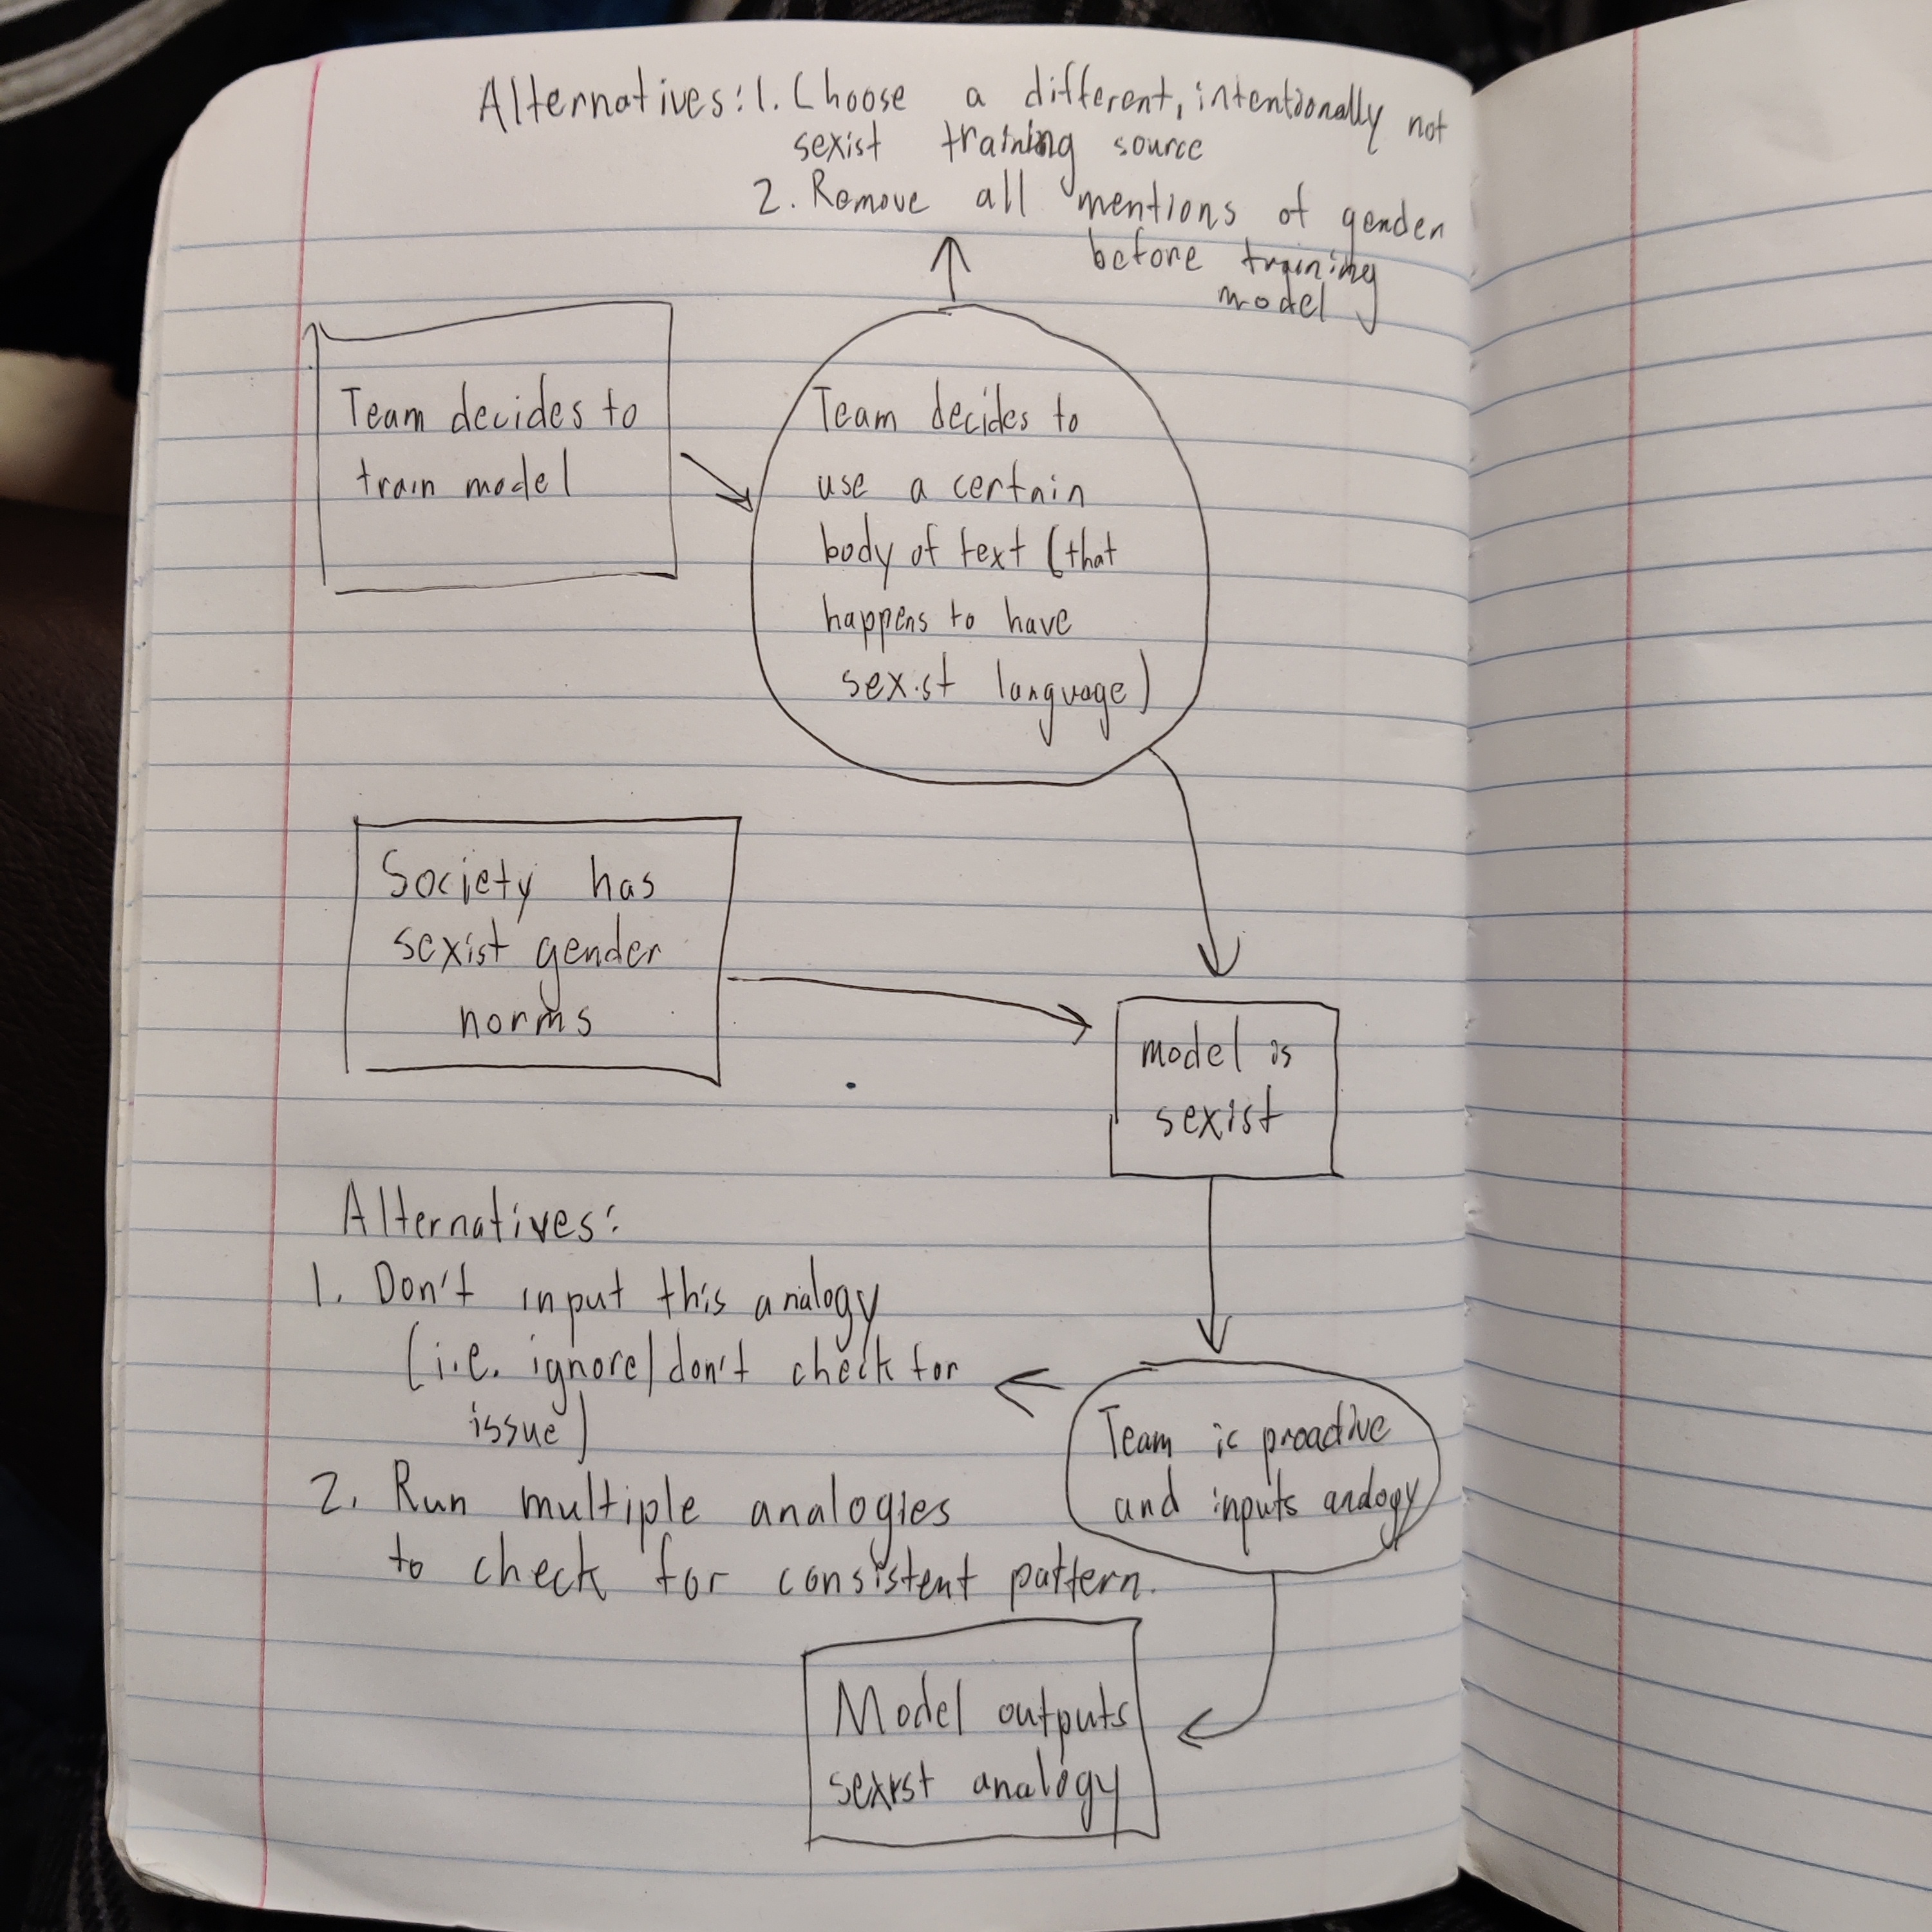 Alternatives: 1. Choose a different, intentionally not
sexist training source
2. Remove all mentions of gender
before training
model
Team decides to
train model
Team decides to
use a certain
body of text (that
happens to have
sexist language)
Society has
sexist gender
norms
model is
sexist
Alternatives:
1. Don't input this analogy
(i.e. ignore/don't check for
issue)
2. Run multiple analogies
to check for consistent pattern.
Team is proactive
and inputs analogy
Model outputs
sexist analogy